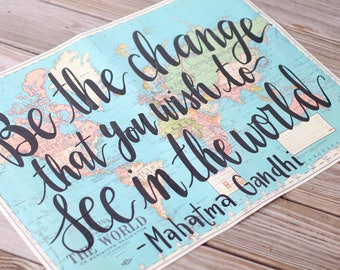 Be the change
that you wish to
see in the world
-Mahatma Gandhi
THE WORLD